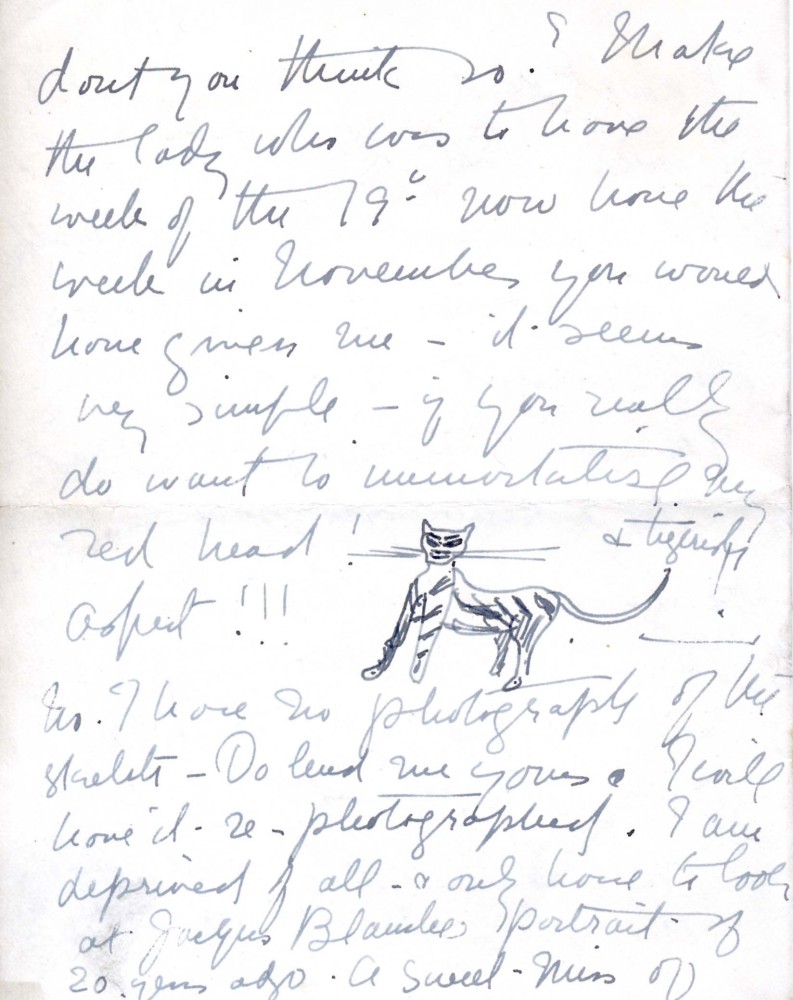 dont you think so? Make
the lady who was to have the
week of the 19th now have the
week in November you would
have given me – it seems
very simple – if you really
do want to immortalise my
red head! & tigerish
aspect!!!
No. I have no photograph of the
sketch – Do lend me yours & I will
have it re-photographed. I am
deprived of all – & only have to look
at Jacques Blanche's portrait of
20 years ago. A sweet Miss of